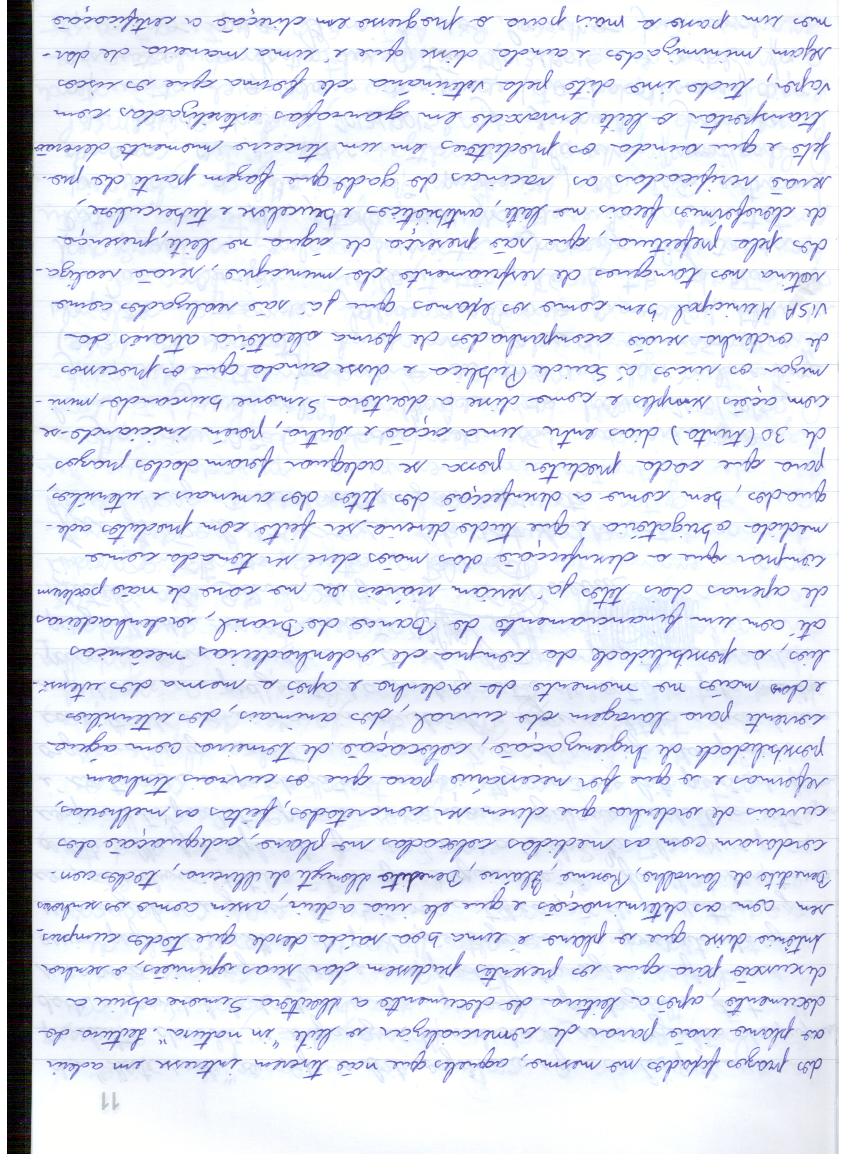 11
dos prazos fixados no mesmo, aqueles que não tiverem interesse em aderir
ao plano irão parar de comercializar o leite "in natura". Leitura do
documento, após a leitura do documento a doutora Simone abriu a
discussão para que os presentes pudessem dar suas opiniões, o senhor
Antônio disse que o plano é uma boa saída desde que todos cumpris-
sem com as determinações e que ele iria aderir, assim como os senhores
Benedito de Carvalho, Rosino, Ilário, Benedito de Oliveira, todos con-
cordaram com as medidas colocadas no plano, adequação dos
currais de ordenha que devem ser concretados, feitas as melhorias,
reformas e o que for necessário para que os currais tenham
possibilidade de higienização, colocação de torneira com água
corrente para lavagem do curral, dos animais, dos utensílios
e das mãos no momento da ordenha e após a mesma dos utensí-
lios, a possibilidade da compra de ordenhadeiras mecânicas
até com um financiamento do Banco do Brasil, ordenhadeiras
de apenas dois tetos já seriam viáveis ou no caso de não poderem
comprar que a desinfecção das mãos deve ser tomada como
medida obrigatória e que tudo deveria ser feito com produtos ade-
quados, bem como a desinfecção dos tetos dos animais e utensílios,
para que cada produtor possa se adequar foram dados prazos
de 30 (trinta) dias entre uma ação e outra, porém iniciando-se
com ações simples e como disse a doutora Simone buscando mini-
mizar os riscos à Saúde Pública e disse ainda que os processos
de ordenha serão acompanhados de forma aleatória através da
VISA Municipal bem como os exames que já são realizados como
rotina nos tanques de resfriamento do município, serão realiza-
dos pela prefeitura, que são presença de água no leite, presença
de coliformes fecais no leite, antibióticos e brucelose e tuberculose,
serão verificadas as vacinas do gado que fazem parte do pro-
jeto e que ainda os produtores em um terceiro momento deverão
transportar o leite envazado em garrafas esterilizadas com
vapor, tudo isso dito pela veterinária de forma que os riscos
sejam minimizados e ainda disse que é uma maneira de dar-
mos um passo a mais para o progresso em direção a certificação